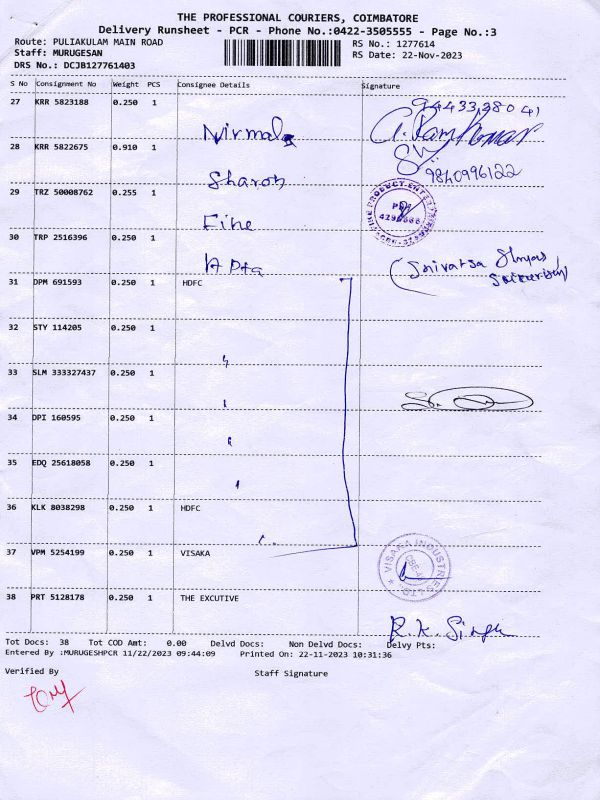 THE PROFESSIONAL COURIERS, COIMBATORE
Delivery Runsheet - PCR - Phone No.:0422-3505555 - Page No.:3
Route: PULIAKULAM MAIN ROAD RS No.: 1277614
Staff: MURUGESAN RS Date: 22-Nov-2023
DRS No.: DCJB127761403
S No Consignment No Weight PCS Consignee Details Signature
27 KRR 5823188 0.250 1 Nirmala 94433,38041
28 KRR 5822675 0.910 1 Sharon 9840996122
29 TRZ 50008762 0.255 1 Fine
30 TRP 2516396 0.250 1 Srivatsa
31 DPM 691593 0.250 1 HDFC
32 STY 114205 0.250 1
33 SLM 333327437 0.250 1
34 DPI 160595 0.250 1
35 EDQ 25618058 0.250 1
36 KLK 8038298 0.250 1 HDFC
37 VPM 5254199 0.250 1 VISAKA VISAKA INDUSTRIES LTD
38 PRT 5128178 0.250 1 THE EXCUTIVE R.K. Singh
Tot Docs: 38 Tot COD Amt: 0.00 Delvd Docs: Non Delvd Docs: Delvy Pts:
Entered By :MURUGESHPCR 11/22/2023 09:44:09 Printed On: 22-11-2023 10:31:36
Verified By Staff Signature